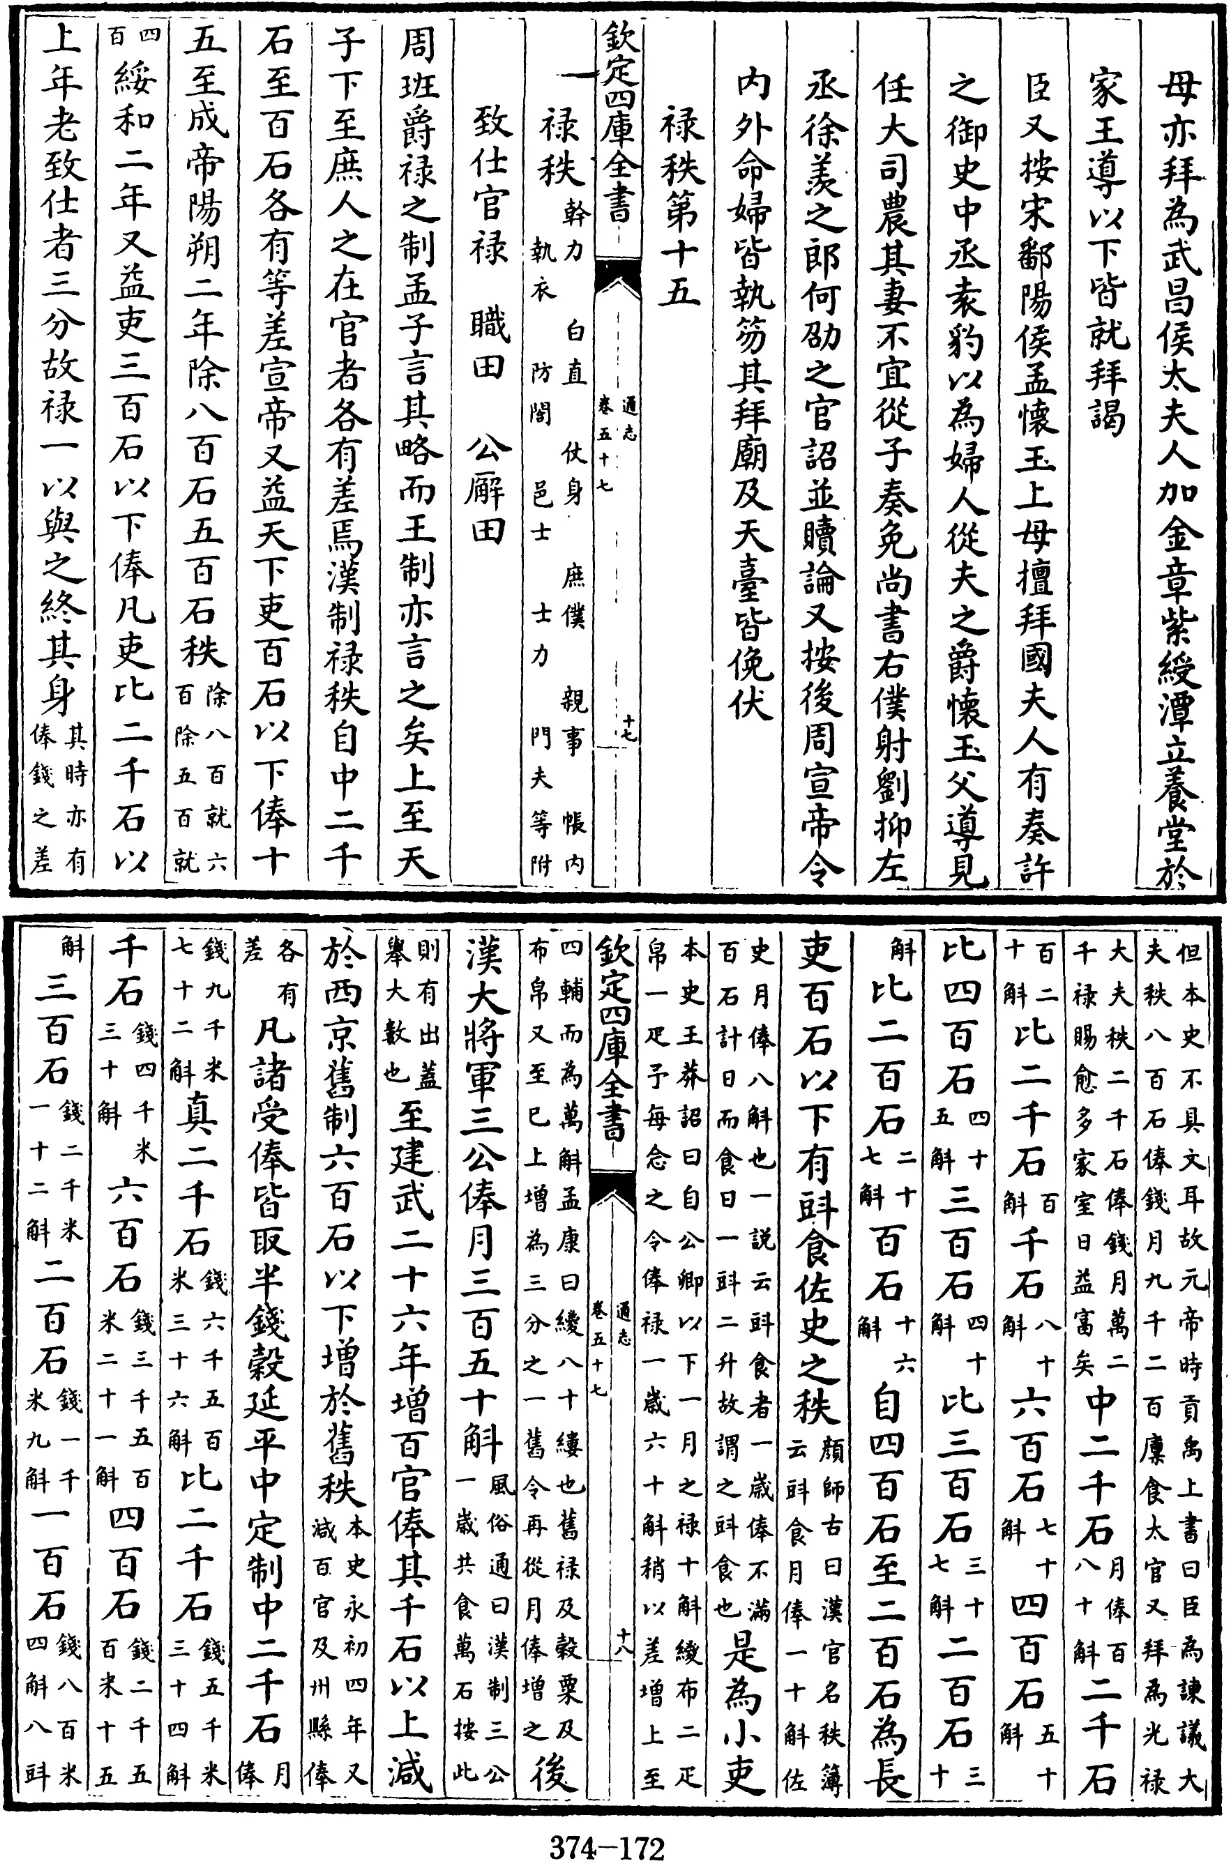 母亦拜為武昌侯太夫人加金章紫綬潭立養堂於
家王導以下皆就拜謁
臣又按宋鄱陽侯孟懷玉上母擅拜國夫人有奏許
之御史中丞袁豹以為婦人從夫之爵懷玉父導見
任大司農其妻不宜從子奏免尚書右僕射劉抑左
丞徐羨之郎何劭之官詔並贖論又按後周宣帝令
內外命婦皆執笏其拜廟及天臺皆俛伏
祿秩第十五
欽定四庫全書
通志
卷五十七
十七
祿秩
幹力 白直 仗身 庶僕 親事 帳內
執衣 防閤 邑士 士力 門夫等附
致仕官祿 職田 公廨田
周班爵祿之制孟子言其略而王制亦言之矣上至天
子下至庶人之在官者各有差焉漢制祿秩自中二千
石至百石各有等差宣帝又益天下吏百石以下俸十
五至成帝陽朔二年除八百石五百石秩
除八百就六
百除五百就
四
百
綏和二年又益吏三百石以下俸凡吏比二千石以
上年老致仕者三分故祿一以與之終其身
其時亦有
俸錢之差
但本史不具文耳故元帝時貢禹上書曰臣為諫議大
夫秩八百石俸錢月九千二百廩食太官又拜為光祿
大夫秩二千石俸錢月萬二
千祿賜愈多家室日益富矣
中二千石
月俸百
八十斛
二千石
百二
十斛
比二千石
百
斛
千石
八十
斛
六百石
七十
斛
四百石
五十
斛
比四百石
四十
五斛
三百石
四十
斛
比三百石
三十
七斛
二百石
三
十
斛
比二百石
二十
七斛
百石
十六
斛
自四百石至二百石為長
吏百石以下有㪷食佐史之秩
顏師古曰漢官名秩簿
云㪷食月俸一十斛佐
史月俸八斛也一說云㪷食者一歲俸不滿
百石計日而食日一㪷二升故謂之㪷食也
是為小吏
本史王莽詔曰自公卿以下一月之祿十斛緵布二疋
帛一疋予每念之令俸祿一歲六十斛稍以差增上至
欽定四庫全書
通志
卷五十七
十八
四輔而為萬斛孟康曰緵八十縷也舊祿及穀粟及
布帛又至已上增為三分之一舊令再從月俸增之
後
漢大將軍三公俸月三百五十斛
風俗通曰漢制三公
一歲共食萬石按此
則有出蓋
舉大數也
至建武二十六年增百官俸其千石以上減
於西京舊制六百石以下增於舊秩
本史永初四年又
減百官及州縣俸
各有
差
凡諸受俸皆取半錢穀延平中定制中二千石
月
俸
錢九千米
七十二斛
真二千石
錢六千五百
米三十六斛
比二千石
錢五千米
三十四斛
千石
錢四千米
三十斛
六百石
錢三千五百
米二十一斛
四百石
錢二千五
百米十五
斛
三百石
錢二千米
一十二斛
二百石
錢一千
米九斛
一百石
錢八百米
四斛八㪷
374-172